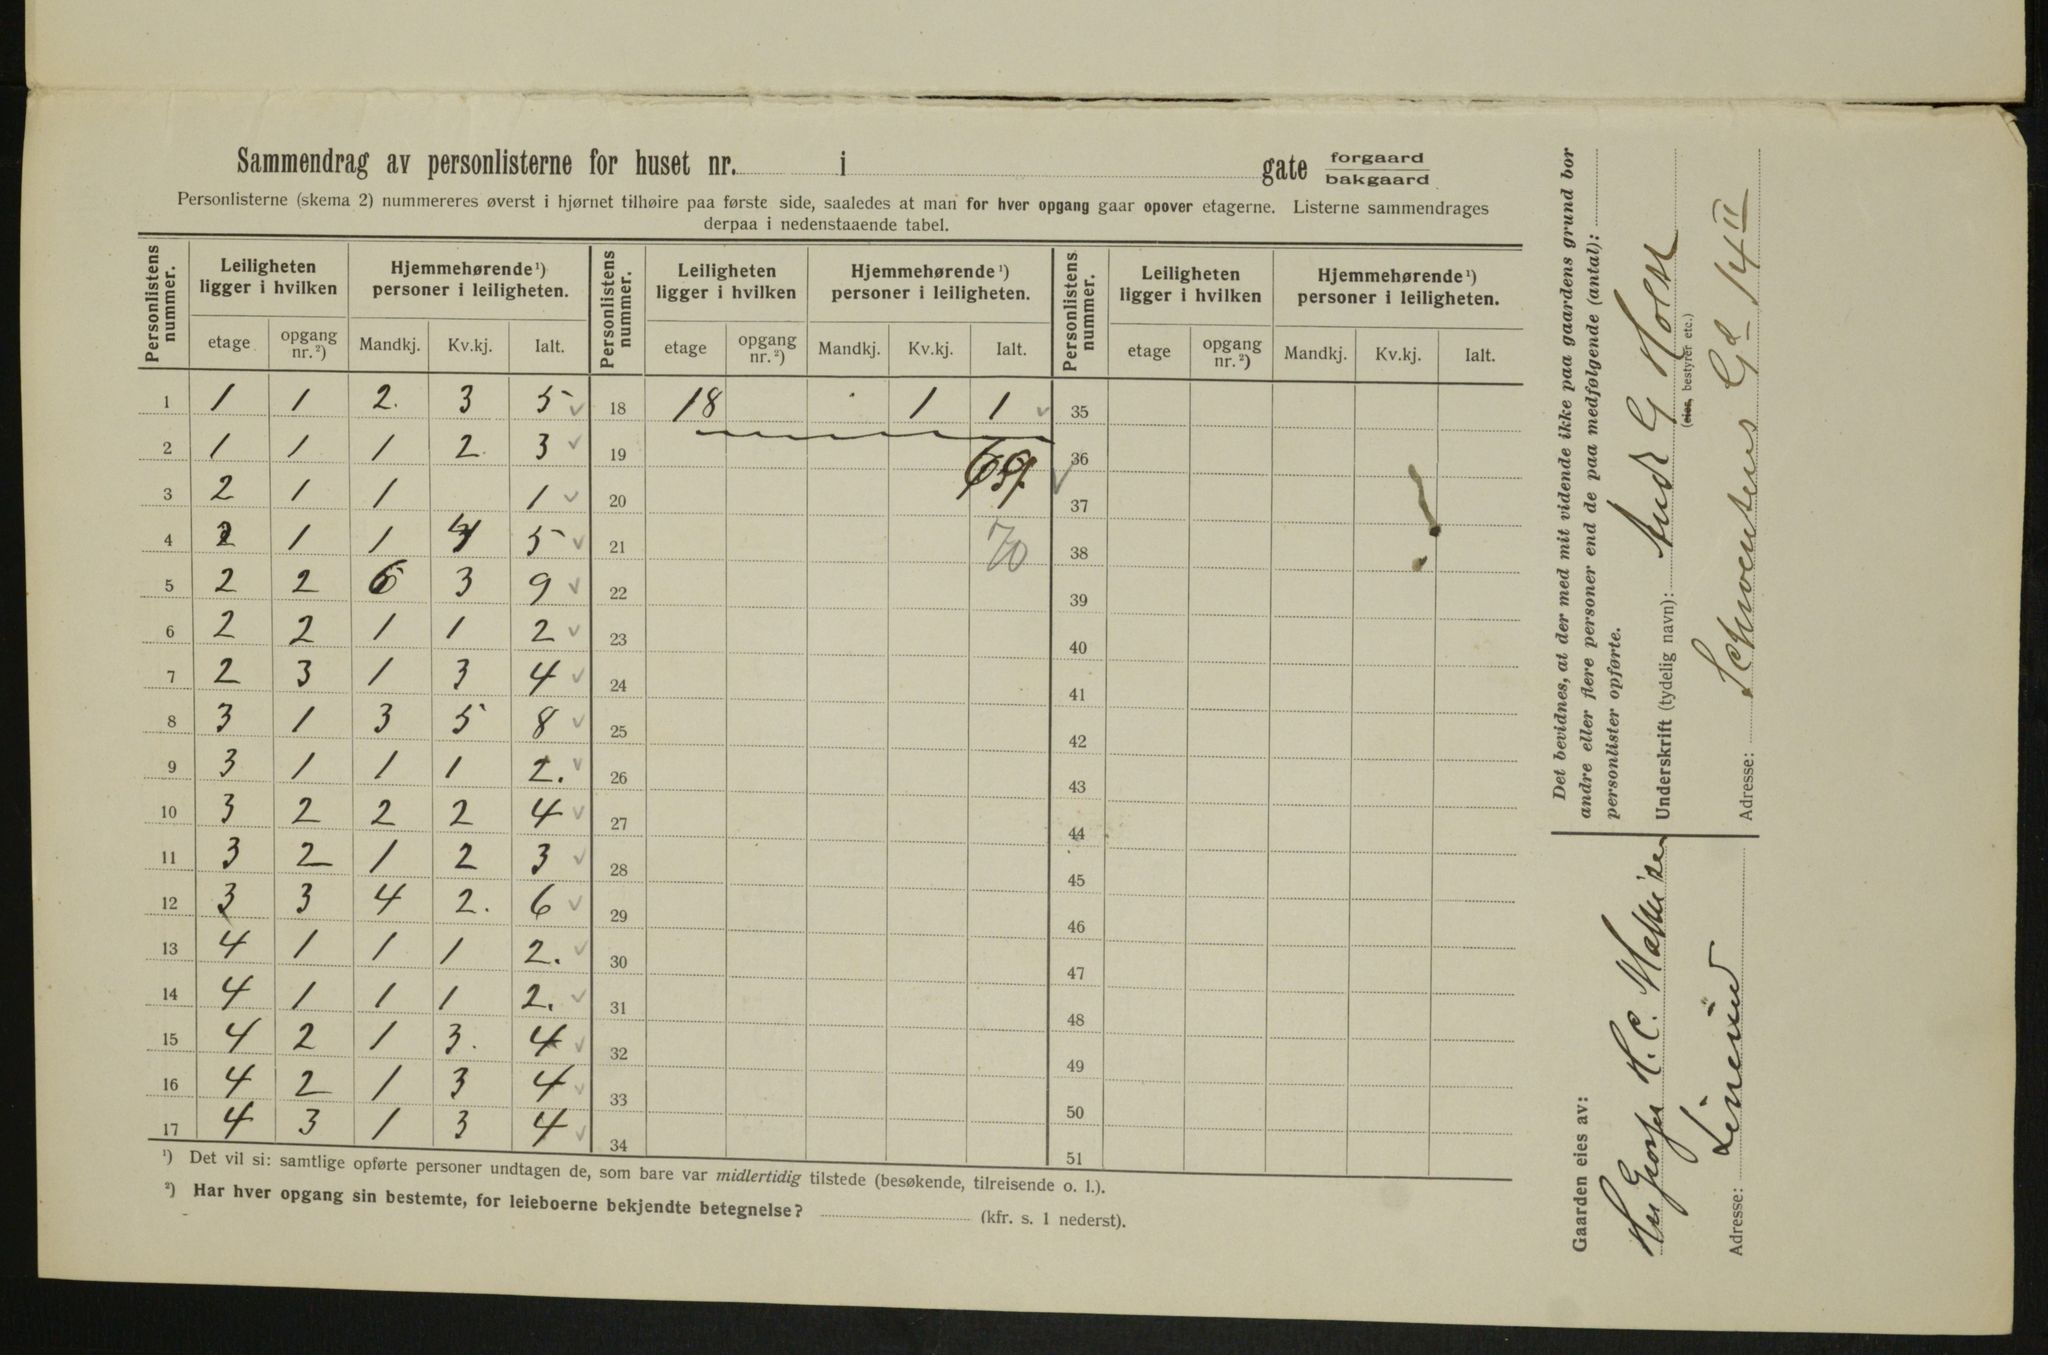 Sammendrag av personlisterne for huset nr. i gate forgaard
bakgaard
Personlisterne (skema 2) nummereres øverst i hjørnet tilhøire paa første side, saaledes at man for hver opgang gaar opover etagerne. Listerne sammendrages
derpaa i nedenstaaende tabel.
Personlistens nummer. Leiligheten ligger i hvilken Hjemmehørende¹) personer i leiligheten.
etage opgang nr.²) Mandkj. Kv.kj. Ialt.
1 1 1 2. 3 5 ✓
2 1 1 1 2 3 ✓
3 2 1 1 1 ✓
4 2 1 1 4 5 ✓
5 2 2 6 3 9 ✓
6 2 2 1 1 2 ✓
7 2 3 1 3 4 ✓
8 3 1 3 5 8 ✓
9 3 1 1 1 2. ✓
10 3 2 2 2 4 ✓
11 3 2 1 2 3 ✓
12 3 3 4 2. 6 ✓
13 4 1 1 1 2. ✓
14 4 1 1 1 2. ✓
15 4 2 1 3. 4 ✓
16 4 2 1 3 4 ✓
17 4 3 1 3 4 ✓
Personlistens nummer. Leiligheten ligger i hvilken Hjemmehørende¹) personer i leiligheten.
etage opgang nr.²) Mandkj. Kv.kj. Ialt.
18 18 1 1 ✓
19 69 ✓
20
21 70
22
23
24
25
26
27
28
29
30
31
32
33
34
Personlistens nummer. Leiligheten ligger i hvilken Hjemmehørende¹) personer i leiligheten.
etage opgang nr.²) Mandkj. Kv.kj. Ialt.
35
36
37
38
39
40
41
42
43
44
45
46
47
48
49
50
51
¹) Det vil si: samtlige opførte personer undtagen de, som bare var midlertidig tilstede (besøkende, tilreisende o. l.).
²) Har hver opgang sin bestemte, for leieboerne bekjendte betegnelse? (kfr. s. 1 nederst).
Det bevidnes, at der med mit vidende ikke paa gaardens grund bor
andre eller flere personer end de paa medfølgende (antal):
personlister opførte.
Underskrift (tydelig navn): Andr G Holst
(eier, bestyrer etc.)
Adresse: Schwensens Gd 14 II
Gaarden eies av:
H. C.
Adresse: